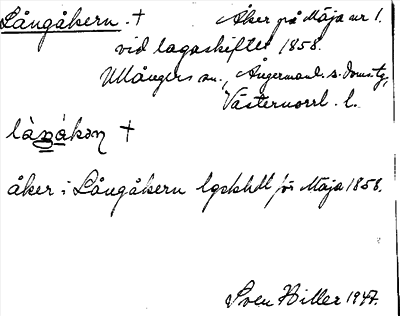 Långåkern. † Åker på Mäja nr 1.
vid lagaskiftet 1858.
Ullångers sn., Ångermanl. s. doms.tg,
Västernorrl. l.
làŋákəɳ †
åker i Långåkern lgskhdl för Mäja 1858.
Sven Hiller 1947.